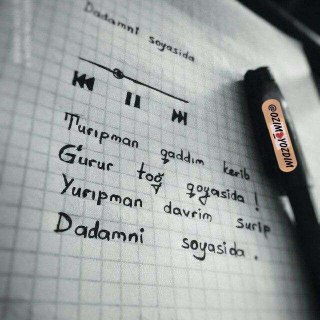 Dadamni soyasida
Turipman qaddim kerib
Gurur toğ qoyasida !
Yuripman davrim surip
Dadamni soyasida .
@OZIM❤YOZDIM